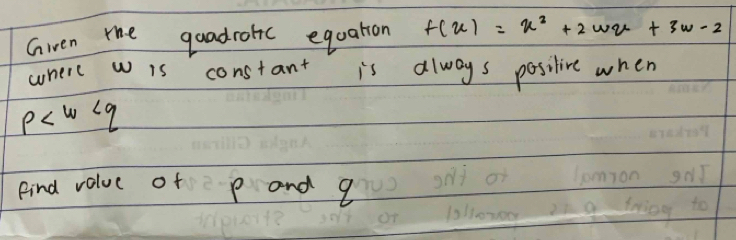 Given the quadratic equation f(x) = x² + 2wx + 3w - 2
where w is constant is always positive when
p < w < q
find value of p and q